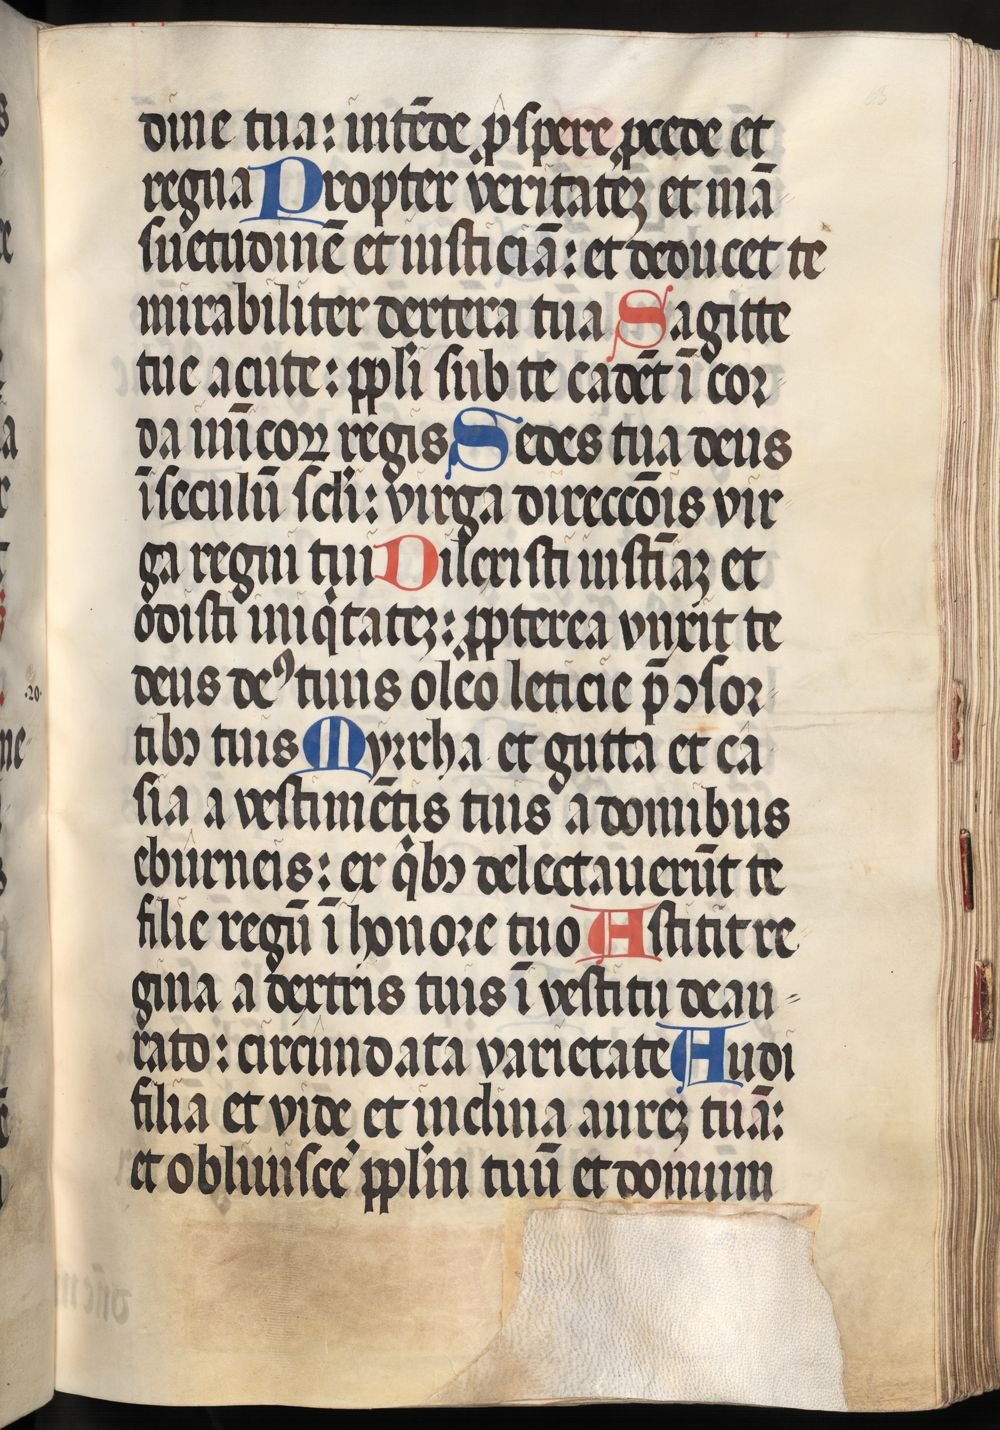 dine tua: intēde p̱spere ꝓcede et
regna Propter veritateꝫ et mā
suetudinē et iusticiā: et deducet te
mirabiliter dextera tua Sagitte
tue acute: ppłi sub te cadēt ī cor
da inīicoꝝ regis Sedes tua deus
ī seculū scłi: virga direccōis vir
ga regni tui Dilexisti iustīaꝫ et
odisti iniqͥtateꝫ: ꝓpterea vnxit te
deus deꝰ tuus oleo leticie p̄ ↄsor
tibꝫ tuis Myrrha et gutta et ca
sia a vestimētis tuis a domibus
eburneis: ex qͥbꝫ delectauerūt te
filie regū ī honore tuo Astitit re
gina a dextris tuis ī vestitu deau
rato: circumdata varietate Audi
filia et vide et inclina aureꝫ tuā:
et obliuiscē ppłm tuū et domum
·20·